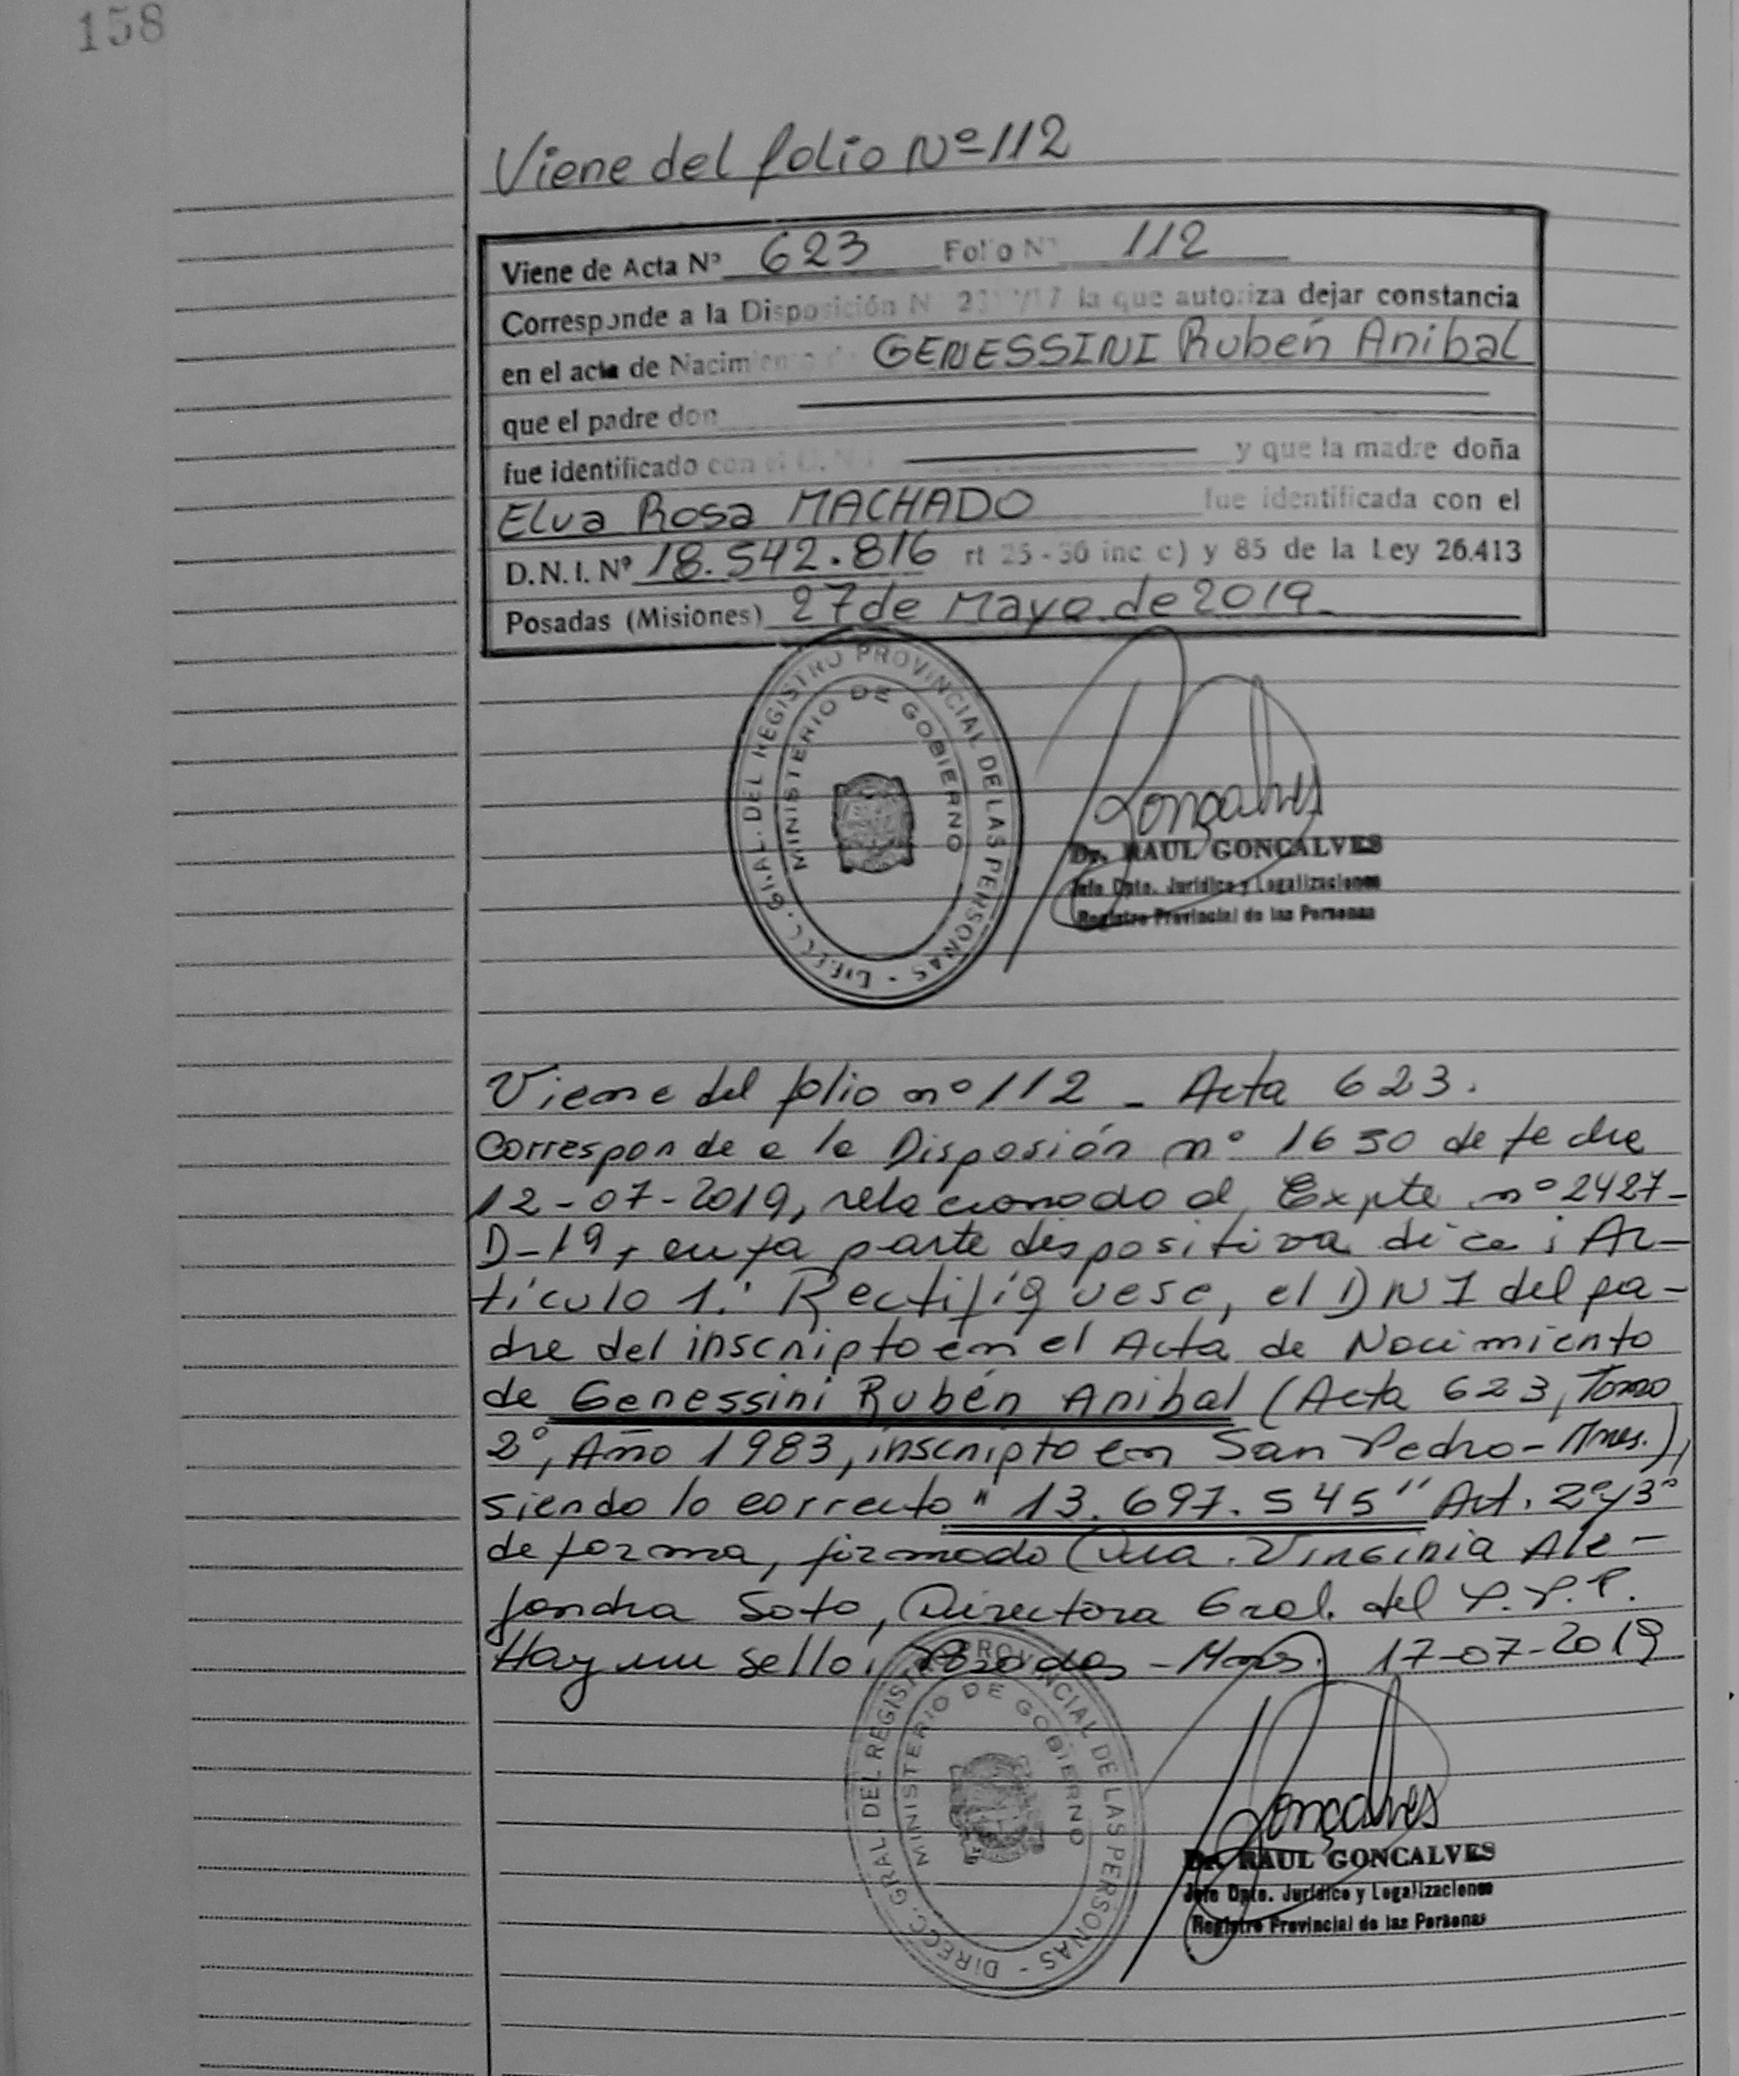 158
Viene del folio Nº 112
Viene de Acta Nº 623 Folio Nº 112
Corresponde a la Disposición N la que autoriza dejar constancia
en el acta de Nacimiento de GENESSINI Rubén Anibal
que el padre don
fue identificado con el D.N.I. y que la madre doña
Elva Rosa MACHADO fue identificada con el
D.N.I. Nº 18.542.816 rt 25-30 inc c) y 85 de la Ley 26.413
Posadas (Misiones) 27 de Mayo de 2019
DIRECC. GRAL. DEL REGISTRO PROVINCIAL DE LAS PERSONAS -
MINISTERIO DE GOBIERNO
Gonçalves
Dr. RAUL GONCALVES
Jefe Dpto. Jurídico y Legalizaciones
Registro Provincial de las Personas
Viene del folio nº 112 - Acta 623.
Corresponde a la Disposión nº 1630 de fecha
12-07-2019, relacionado al Expte nº 2427-
D-19, cuya parte dispositiva dice: Ar-
tículo 1.: Rectifíquese, el DNI del pa-
dre del inscripto en el Acta de Nacimiento
de Genessini Rubén Anibal (Acta 623, Tomo
2º, Año 1983, inscripto en San Pedro-Mnes.),
siendo lo correcto "13.697.545" Art. 2º y 3º
de forma, firmado Dra. Virginia Ale-
jandra Soto, Directora Gral. del
Hay un sello. Posadas - Mnes. 17-07-2019
DIRECC. GRAL. DEL REGISTRO PROVINCIAL DE LAS PERSONAS -
MINISTERIO DE GOBIERNO
Gonçalves
Dr. RAUL GONCALVES
Jefe Dpto. Jurídico y Legalizaciones
Registro Provincial de las Personas